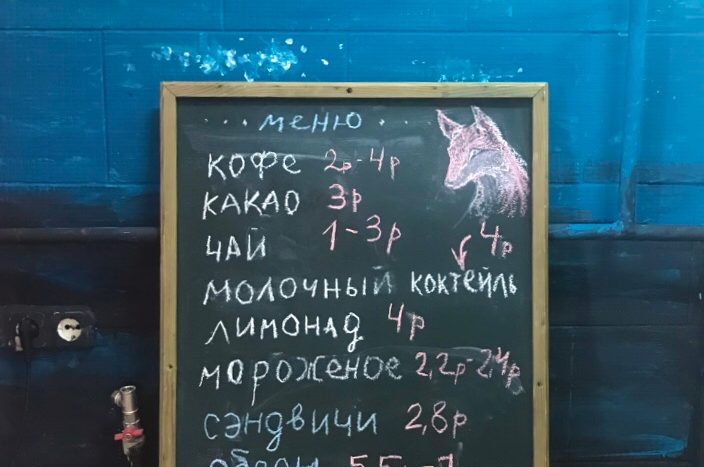 ... меню ...
кофе 2р-4р
какао 3р
чай 1-3р
4р
молочный коктейль
лимонад 4р
мороженое 2,2р-2,4р
сэндвичи 2,8р